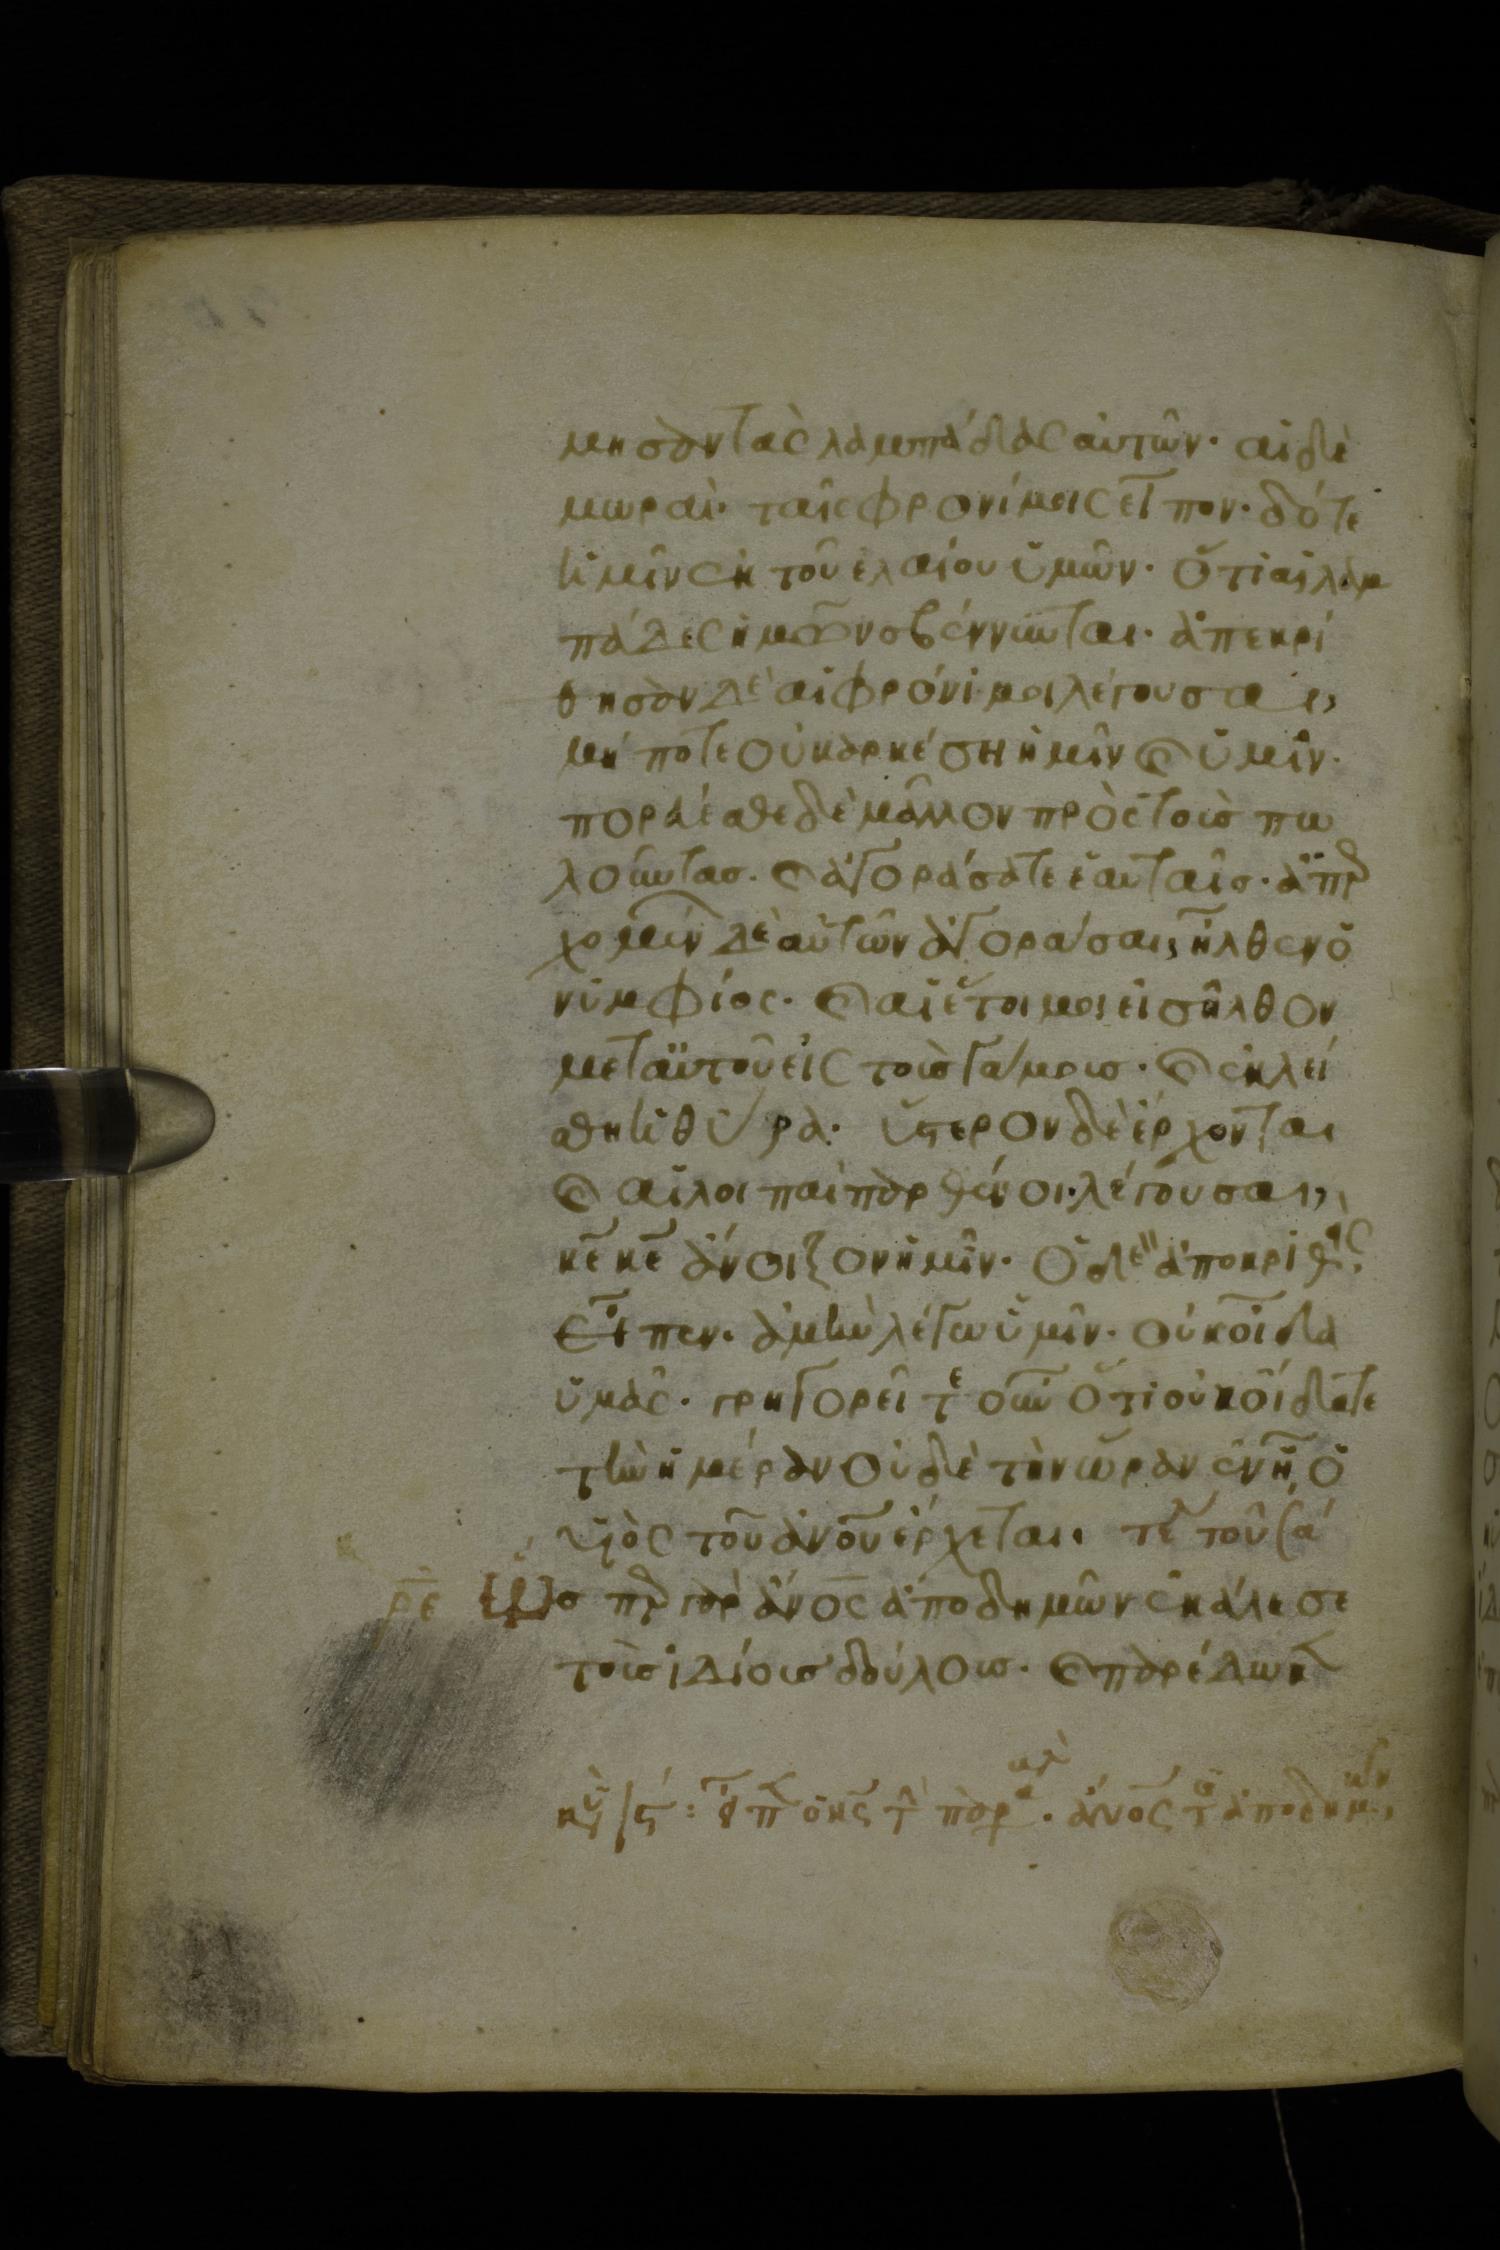 μησαν τὰς λαμπάδας αὐτῶν· αἱ δὲ
μωραὶ· ταῖς φρονίμοις εἶπον· δότε
ἡμῖν ἐκ τοῦ ἐλαίου ὑμῶν· ὅτι αἱ λαμ
πάδες ἡμῶν σβέννυνται· ἀπεκρί
θησαν δὲ αἱ φρόνιμοι λέγουσαι,
μήποτε οὐκ ἀρκέση ἡμῖν καὶ ὑμῖν·
πορεύεσθε δὲ μᾶλλον πρὸς τοὺς πω
λοῦντας· καὶ ἀγοράσατε ἑαυταῖς· ἀπερ
χομένων δὲ αὐτῶν ἀγοράσαι, ἦλθεν ὁ
νυμφίος· καὶ αἱ ἕτοιμοι εἰσῆλθον
μετ αὐτοῦ εἰς τοὺς γάμους· καὶ ἐκλεί
σθη ἡ θύρα· ὕστερον δὲ ἔρχονται
καὶ αἱ λοιπαὶ παρθένοι· λέγουσαι,
κε κε ἄνοιξον ἡμῖν· ὁ δὲ ἀποκριθεὶς
εἶπεν· ἀμὴν λέγω ὑμῖν· οὐκ οἶδα
ὑμᾶς· γρηγορεῖτε οὖν ὅτι οὐκ οἴδατε
τὴν ἡμέραν οὐδὲ τὴν ὥραν ἐν ἧ ὁ
υἱὸς τοῦ ἀνου ἔρχεται· τε τοῦ σα
ρε ὥσπερ γὰρ ἄνος ἀποδημῶν ἐκάλεσε
τοὺς ἰδίους δούλους· καὶ παρέδωκ